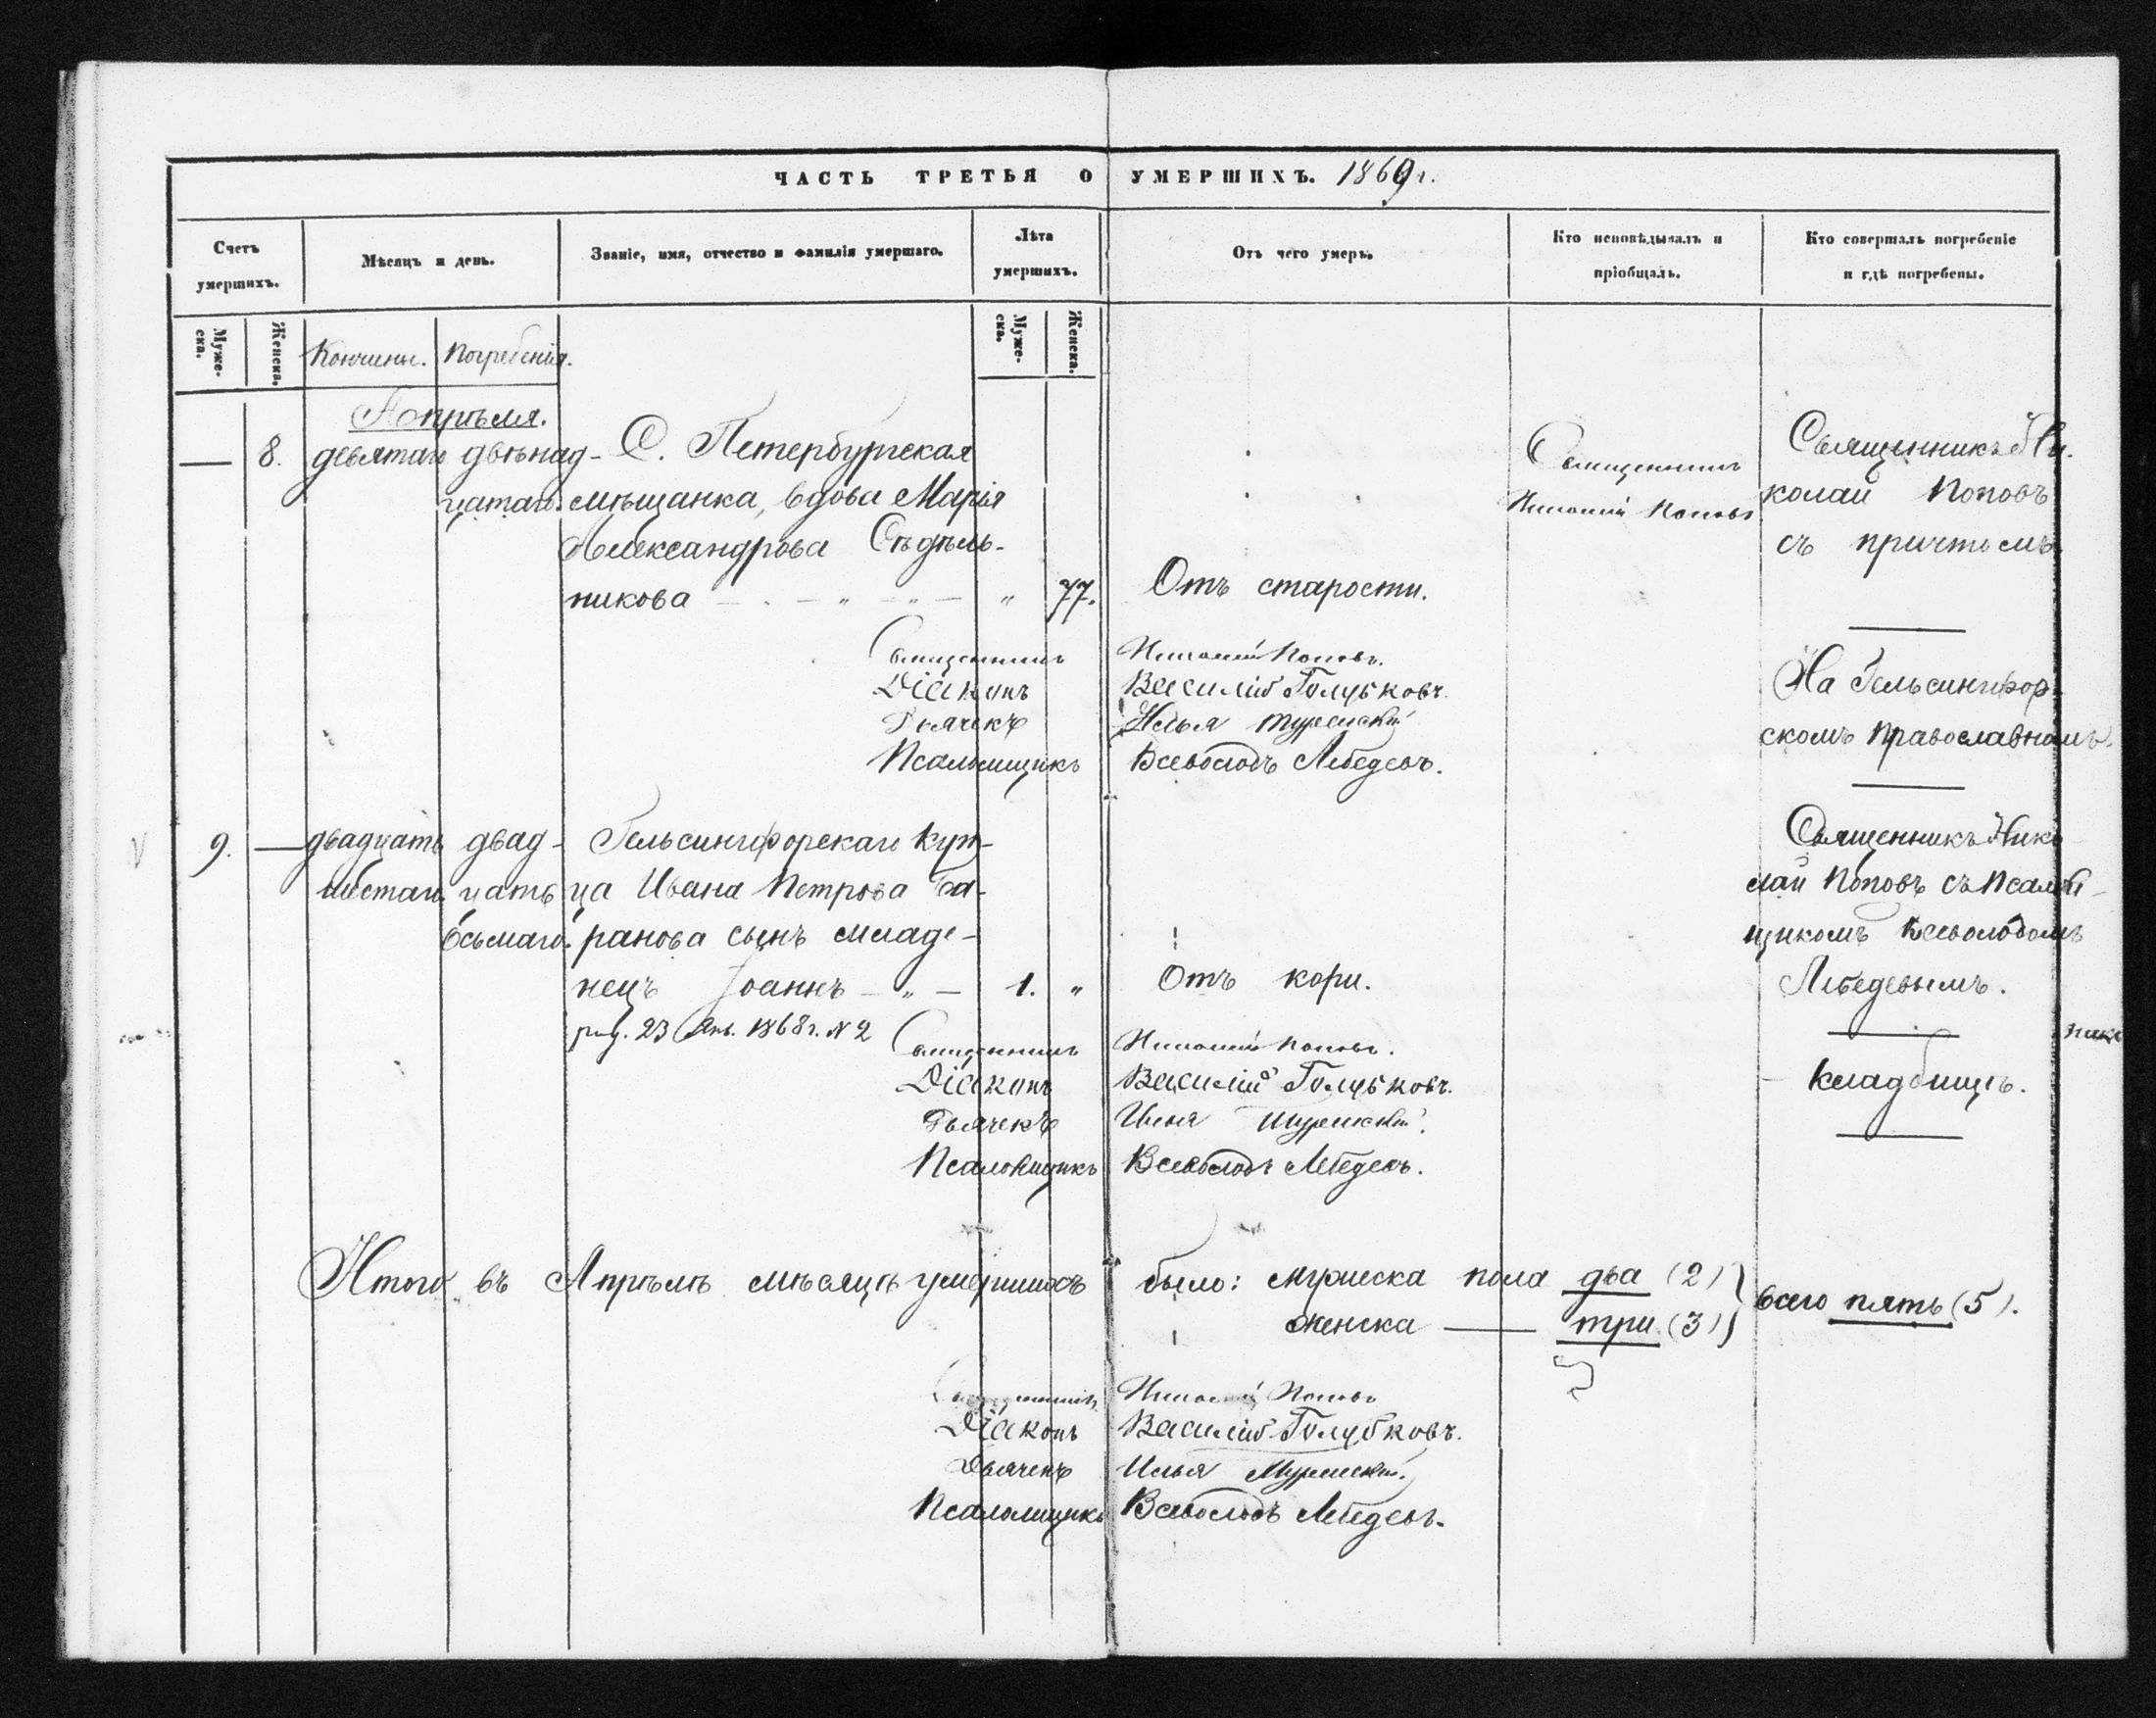 ЧАСТЬ ТРЕТЬЯ О УМЕРШИХЪ. 1869 г.
Счетъ умершихъ.
Мѣсяцъ и день.
Званіе, имя, отчество и фамилія умершаго.
Лѣта умершихъ.
Отъ чего умеръ.
Кто исповѣдывалъ и пріобщалъ.
Кто совершалъ погребеніе и гдѣ погребены.
Мужеска.
Женска.
Кончины.
Погребенія.
Мужеска.
Женска.
Апрѣля.
— 8. девятаго двѣнад-
цатаго.
С. Петербургская
мѣщанка, вдова Марія
Александрова Сѣдѣль-
никова — „ — „ — „ 77.
Отъ старости.
Священникъ
Николай Поповъ
Священникъ Ни-
колай Поповъ
съ причтомъ
Священникъ Николай Поповъ.
Діаконъ Василій Голубковъ.
Дьячекъ Илья
Псаломщикъ Всеволодъ Лебедевъ.
На Гельсингфор-
скомъ Православномъ.
9. — двадцать
шестаго
двад-
цать
осьмаго.
Гельсингфорскаго куп-
ца Ивана Петрова Та-
ранова сынъ младе-
нецъ Іоаннъ — „ — 1. „
род. 23 Янв. 1868 г. № 2
Отъ кори.
Священникъ Нико
лай Поповъ съ Псалом-
щикомъ Всеволодомъ
Лебедевымъ.
Священникъ Николай Поповъ.
Діаконъ Василій Голубковъ.
Дьячекъ Илья
Псаломщикъ Всеволодъ Лебедевъ.
кладбищѣ.
Итого въ Апрѣлѣ мѣсяцѣ умершихъ было: мужеска пола два (2)
женска — три (3)
всего пять (5).
Священникъ Николай Поповъ
Діаконъ Василій Голубковъ.
Дьячекъ Илья
Псаломщикъ Всеволодъ Лебедевъ.